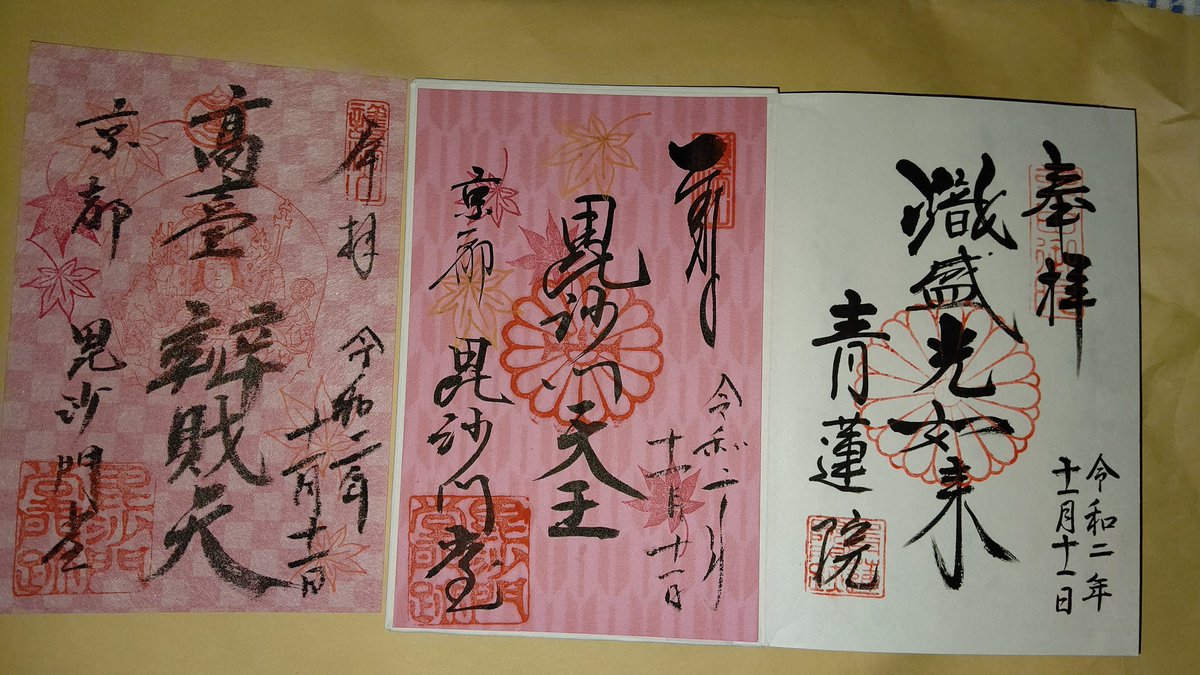 奉拝
令和二年
十一月十一日
熾盛光如来
青蓮院
令和二年
十一月十一日
毘沙門天王
京都 毘沙門堂
奉拝 令和二年
十一月十一日
高臺辯財天
京都 毘沙門堂